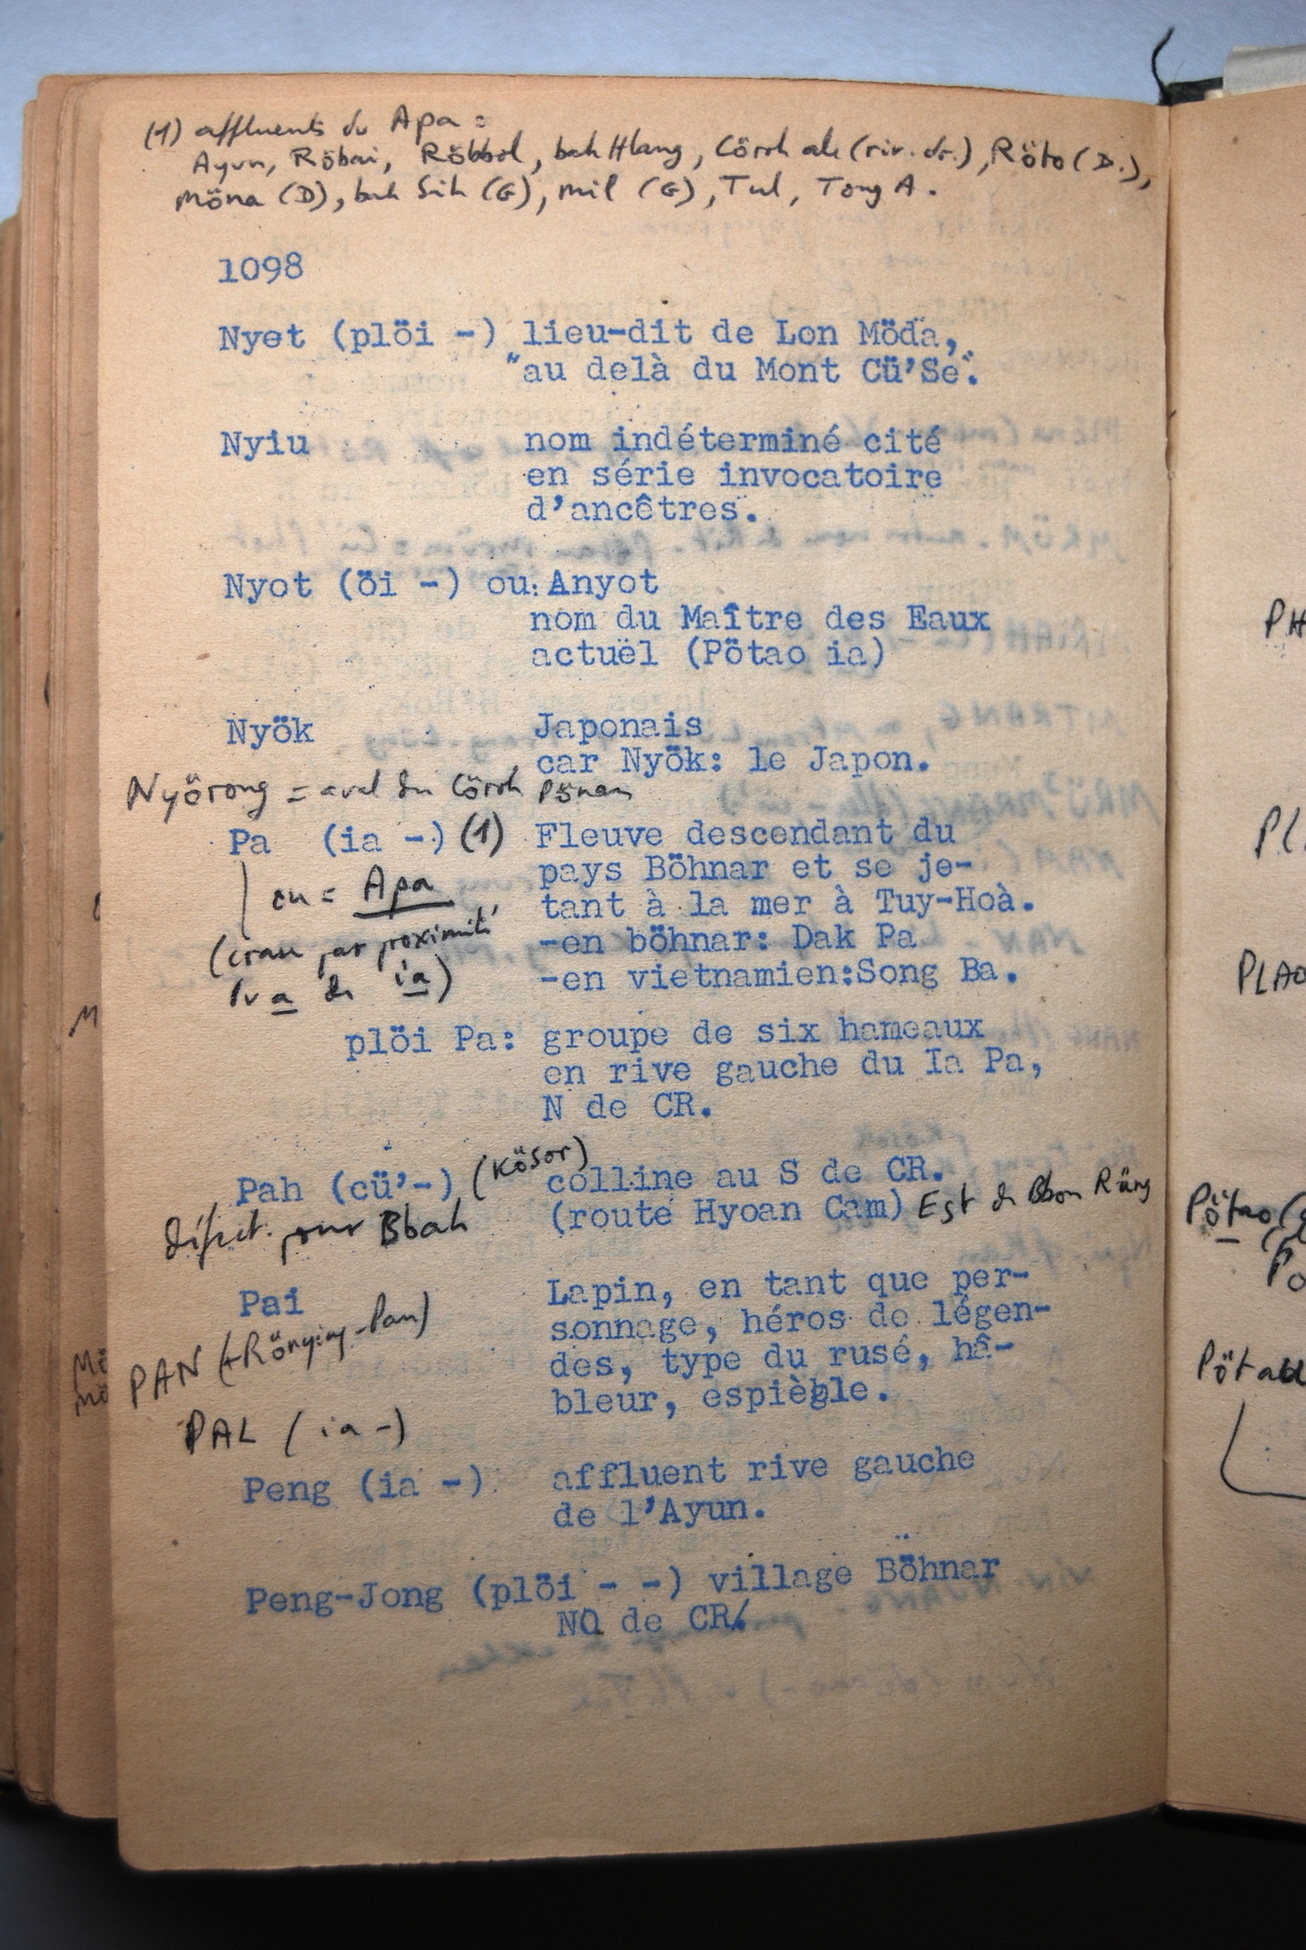 (1) affluents du Apa =
Ayun, Röbai, Röbbol, bah Hlang, Cöroh ale (riv. dr.), Röto (D.),
Möna (D), bah Sih (G), mil (G), Tul, Tong A.
1098
Nyet (plöi -) lieu-dit de Lon Möda,
"au delà du Mont Cü'Se".
Nyiu nom indéterminé cité
en série invocatoire
d'ancêtres.
Nyot (öi -) ou: Anyot
nom du Maître des Eaux
actuël (Pötao ia)
Nyök Japonais
car Nyök: le Japon.
Nyörong = aval du Cöroh Pönan
Pa (ia -) (1) Fleuve descendant du
ou = Apa pays Böhnar et se je-
tant à la mer à Tuy-Hoà.
(crase par proximité -en böhnar: Dak Pa
du a de ia) -en vietnamien:Song Ba.
plöi Pa: groupe de six hameaux
en rive gauche du Ia Pa,
N de CR.
Pah (cü'-) (Kösor) colline au S de CR.
(route Hyoan Cam) Est de Bbon Räng
pour Bbah
Pai Lapin, en tant que per-
sonnage, héros de légen-
PAN des, type du rusé, hâ-
bleur, espiègle.
PAL (ia -)
Peng (ia -) affluent rive gauche
de l'Ayun.
Peng-Jong (plöi - -) village Böhnar
NO de CR.
PH
PL
PLAO
Pötao